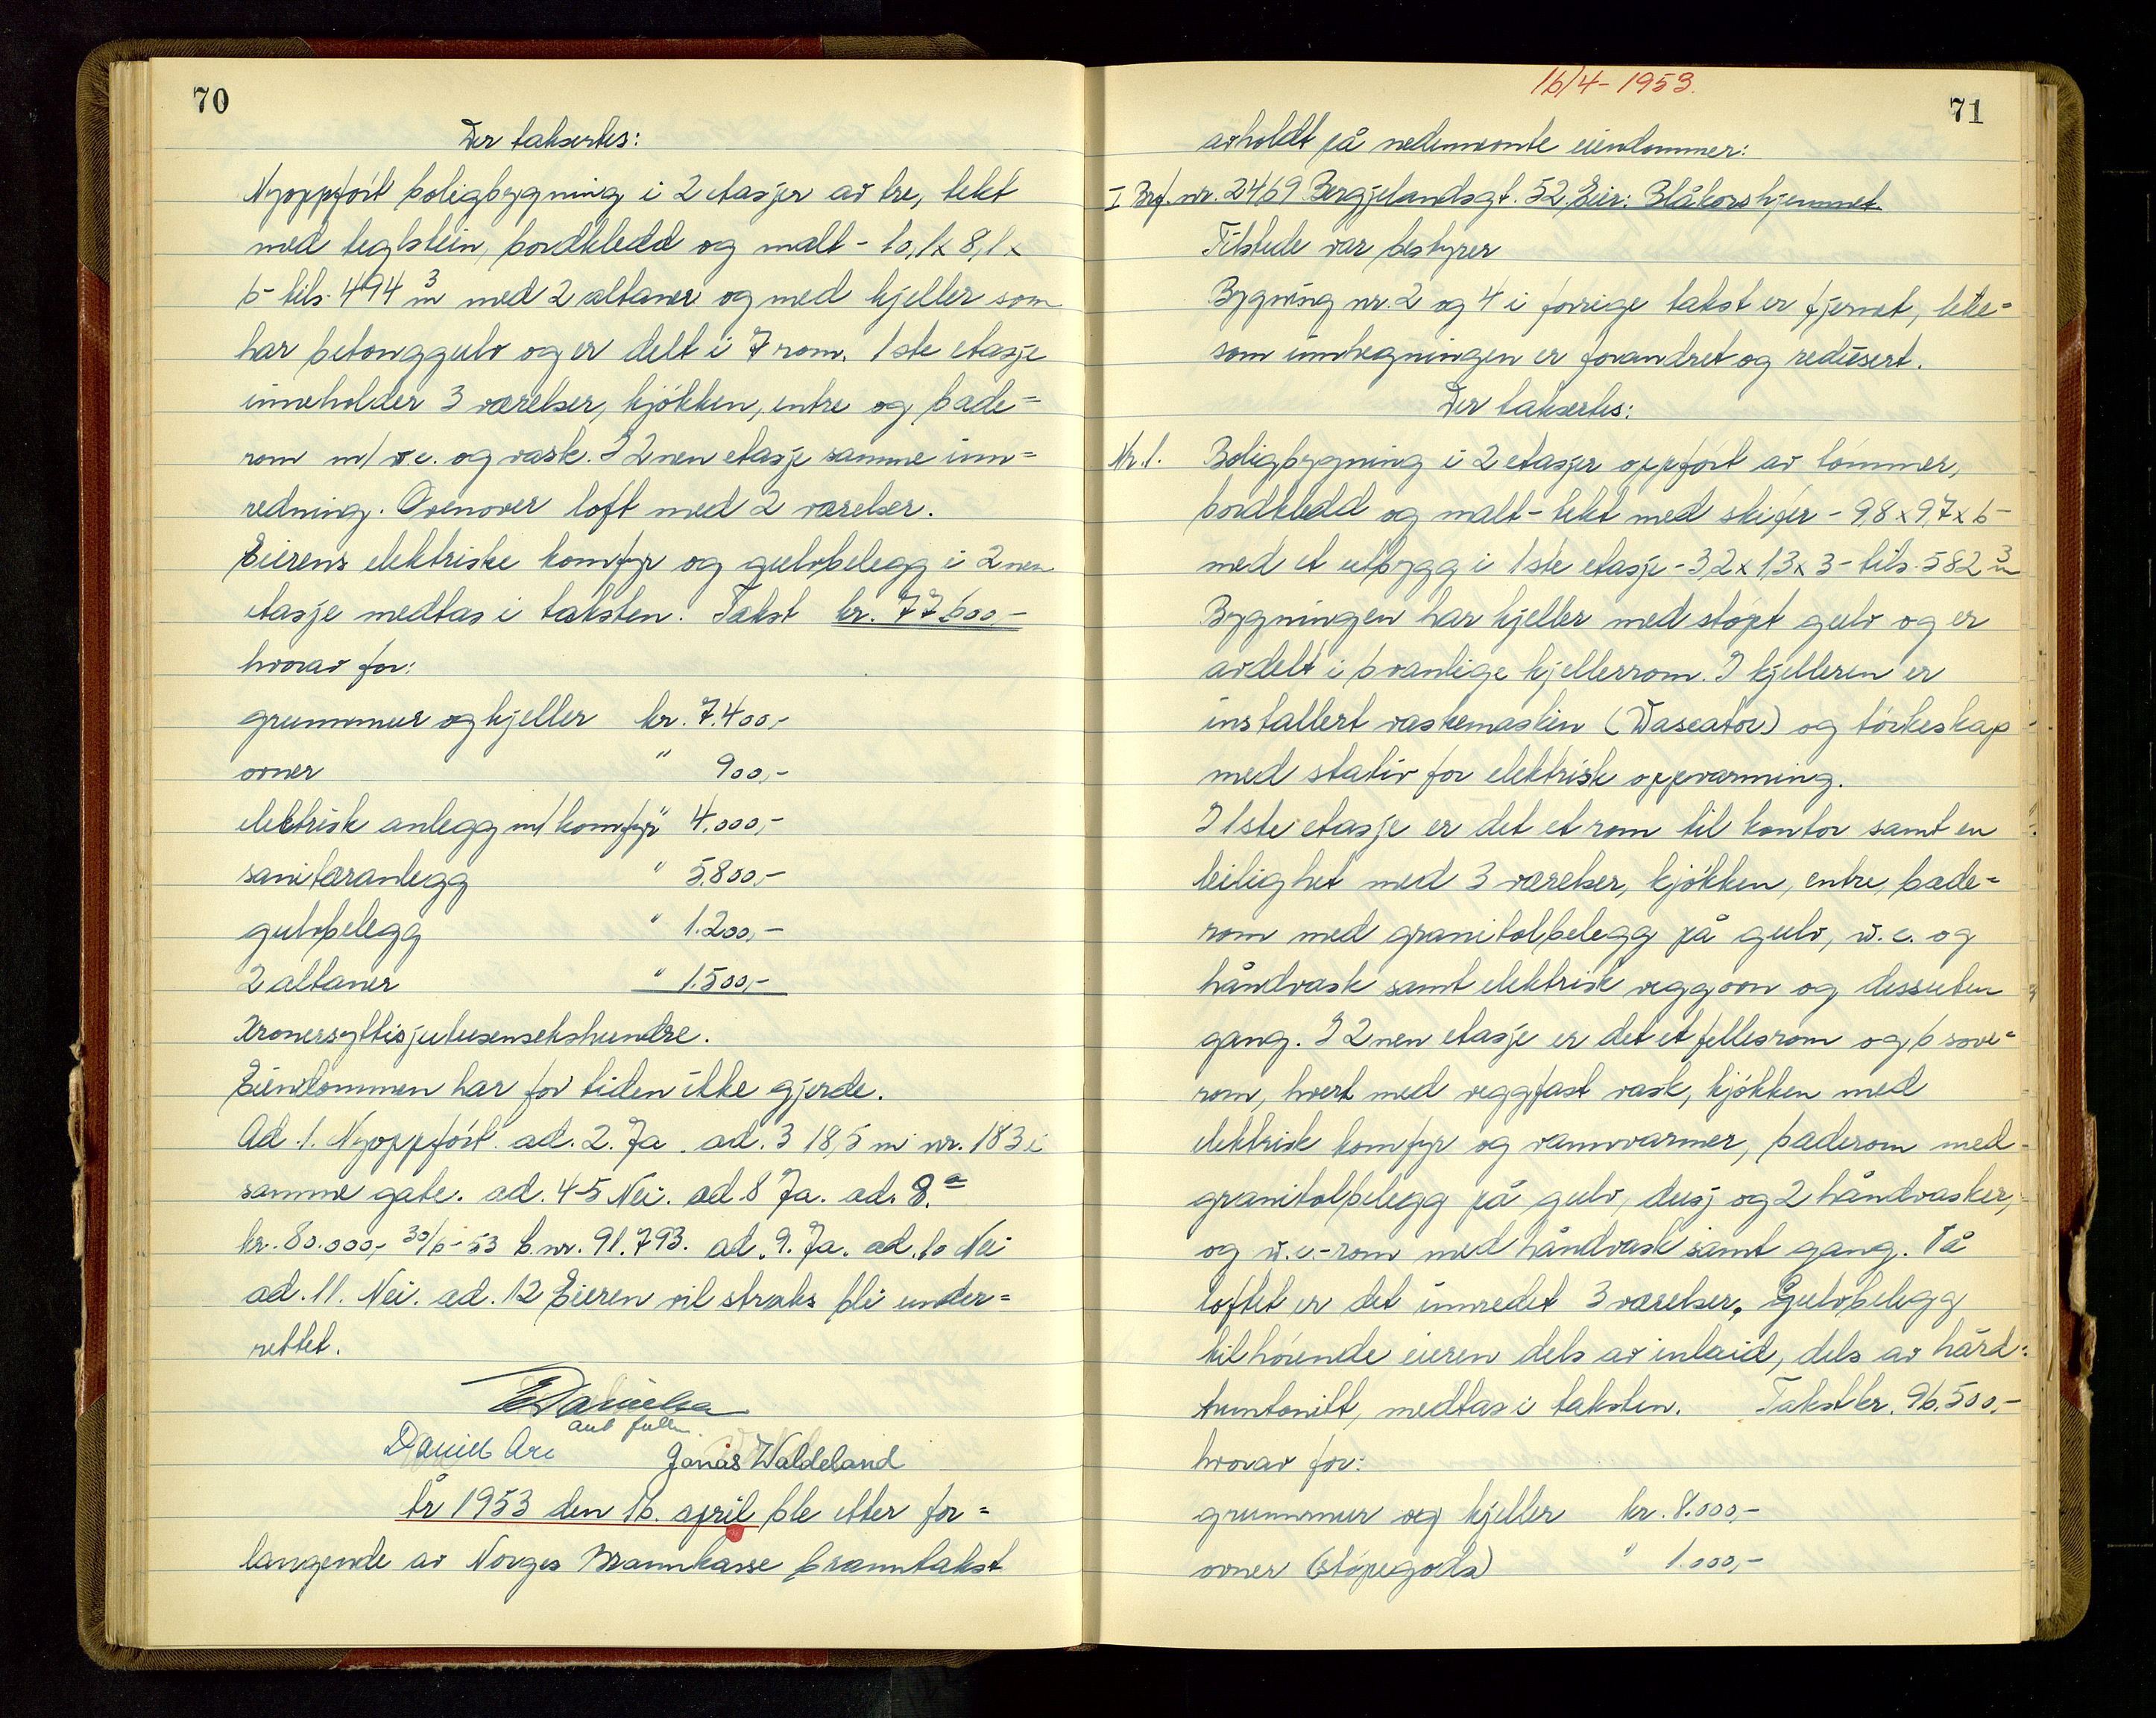 70
Der takseres:
Nyoppført boligbygning i 2 etasjer av tre, tekt
med teglstein, bordkledd og malt - 10,1 x 8,1 x
6 - tils. 494 m³ med 2 altaner og med kjeller som
har betonggulv og er delt i 7 rom. 1ste etasje
inneholder 3 værelser, kjøkken, entre og bade=
rom m/ w.c. og vask. I 2nen etasje samme inn=
redning. Ovenover loft med 2 værelser.
Eierens elektriske komfyr og gulvbelegg i 2nen
etasje medtas i taksten. Takst kr. 77.600,-
hvorav for:
grunnmur og kjeller kr. 7.400,-
ovner " 900,-
elektrisk anlegg m/ komfyr " 4.000,-
sanitæranlegg " 5.800,-
gulvbelegg " 1.200,-
2 altaner " 1.500,-
Kronersyttisjutusensekshundre.
Eiendommen har for tiden ikke gjerde.
Ad. 1. Nyoppført. ad. 2. Ja. ad. 3 18,5 m nr. 183 i
samme gate. ad. 4-5 Nei. ad. 8 Ja. ad. 8.a
kr. 80.000,- 30/6-53 b.nr. 91.793. ad. 9. Ja. ad. 10 Nei
ad. 11. Nei. ad. 12 Eieren vil straks bli under=
rettet.
EDanielsen
Daniel Are Jonas Waldeland
År 1953 den 16. april ble etter for=
langende av Norges Brannkasse branntakst
16/4-1953.
71
avholdt på nedennevnte eiendommer:
I Brf. nr. 2469 Bergjelandsgt. 52. Eier: Blåkorshjemmet.
Tilstede var bestyrer
Bygning nr. 2 og 4 i forrige takst er fjernet, like=
som innhegningen er forandret og redusert.
Der takseres:
Nr. 1. Boligbygning i 2 etasjer oppført av tømmer,
bordkledd og malt - tekt med skifer - 9,8 x 9,7 x 6 -
med et utbygg i 1ste etasje - 3,2 x 1,3 x 3 - tils. 582 m³
Bygningen har kjeller med støpt gulv og er
avdelt i 6 vanlige kjellerrom. I kjelleren er
installert vaskemaskin (Wascator) og tørkeskap
med stativ for elektrisk oppvarming.
I 1ste etasje er det et rom til kontor samt en
leilighet med 3 værelser, kjøkken, entre, bade=
rom med granitolbelegg på gulv, w.c. og
håndvask samt elektrisk veggovn og dessuten
gang. I 2nen etasje er det et fellesrom og 6 sove=
rom, hvert med veggfast vask, kjøkken med
elektrisk komfyr og vannvarmer, baderom med
granitolbelegg på gulv, dusj og 2 håndvasker,
og w.c.-rom med håndvask samt gang. På
loftet er det innredet 3 værelser. Gulvbelegg
tilhørende eieren dels av inlaid, dels av hård=
huntonitt, medtas i taksten. Takst kr. 96.500,-
hvorav for:
grunnmur og kjeller kr. 8.000,-
ovner (støpegods) " 1.000,-